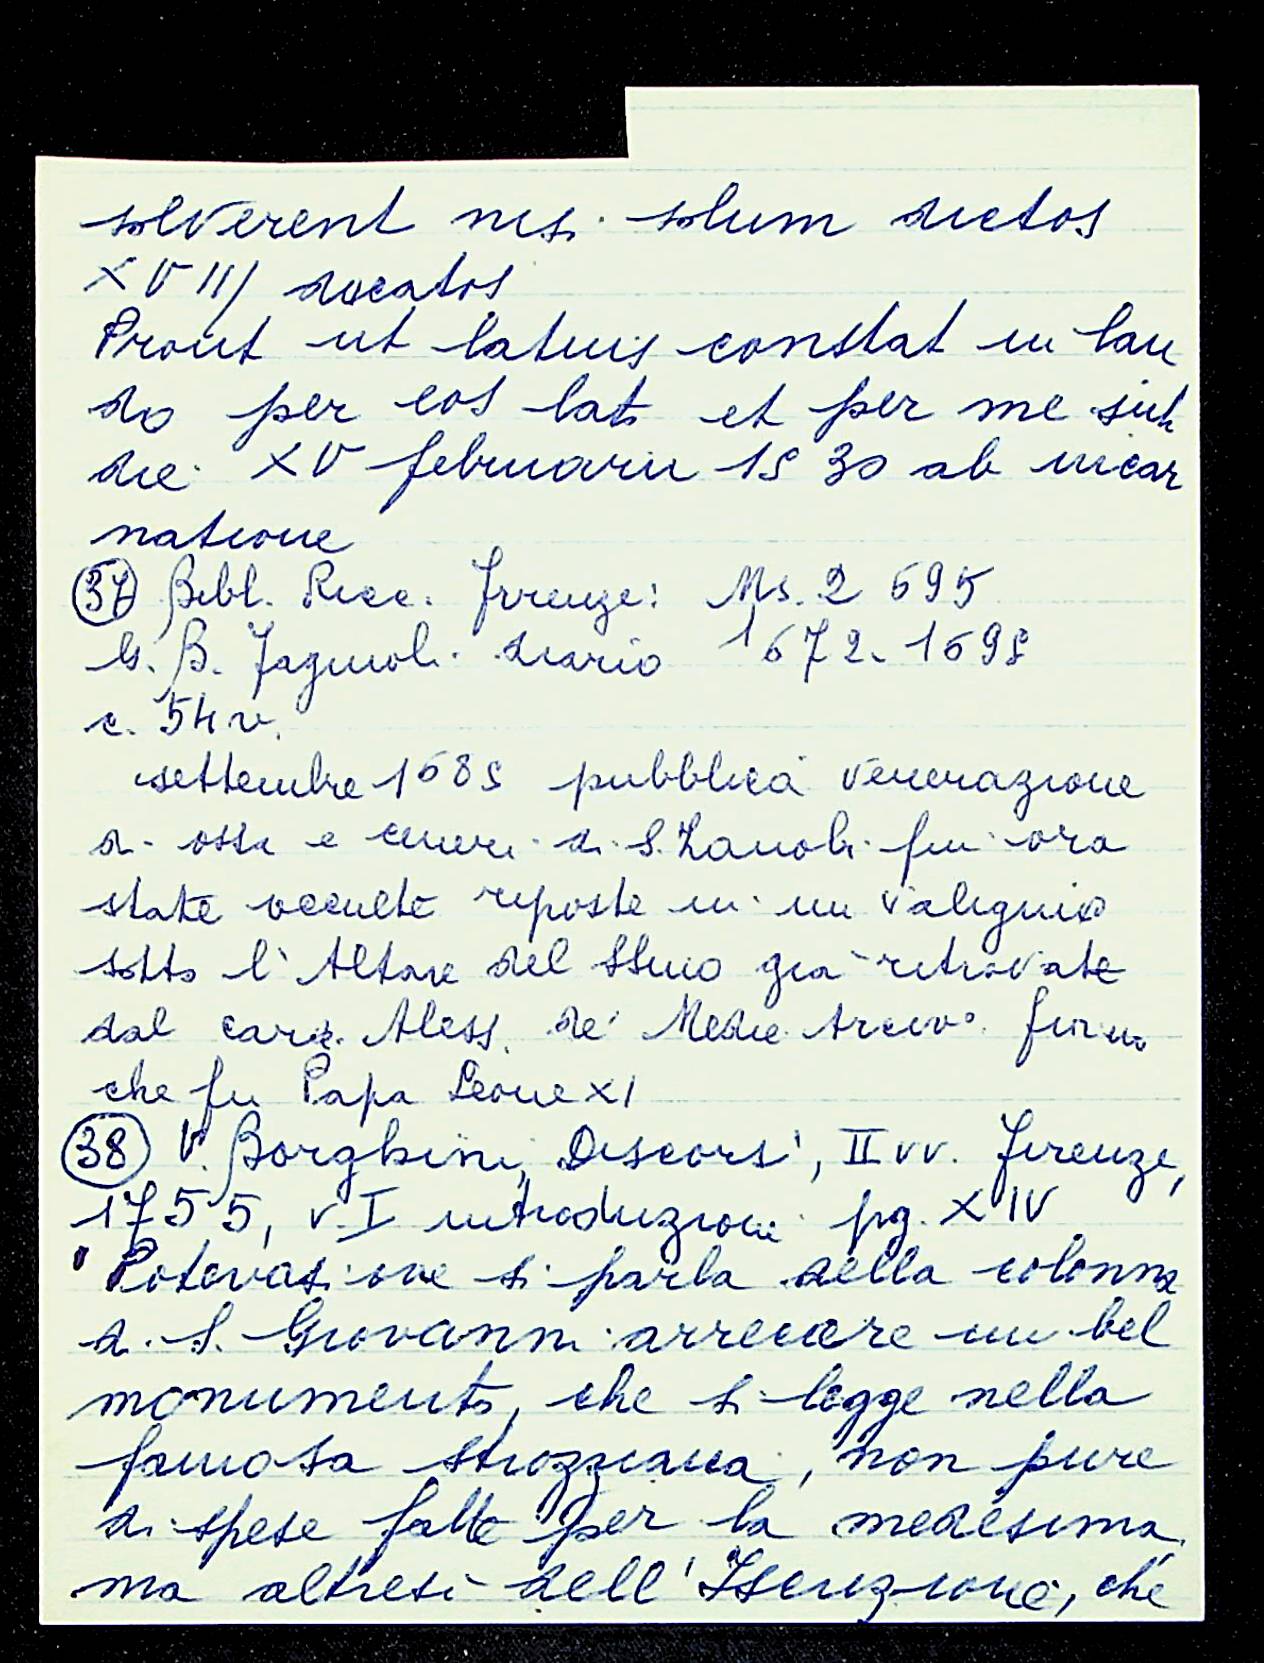 solverent nisi solum dictos
XVIII ducatos
Prout ut latius constat in lau
do per eos lat. et per me sub
die XV februarii 1530 ab incar
natione
(37) Bibl. Ricc. Firenze: Ms. 2695
G. B. Fagiuoli diario 1672-1695
c. 54 v.
settembre 1685 pubblica venerazione
di ossa e ceneri di S. Zanobi fin ora
state occulte riposte in un valigino
sotto l'Altare del SSmo già ritrovate
dal card. Aless. de' Medici Arcivo. fiorno
che fu Papa Leone XI
(38) V. Borghini, Discorsi, II vv. Firenze,
1755, v. I introduzione pg. XIV
"Potevasi ove si parla della colonna
di S. Giovanni arrecare un bel
monumento, che si legge nella
famosa strozziana, non pure
di spese fatte per la medesima,
ma altresì dell'Iscrizione, che